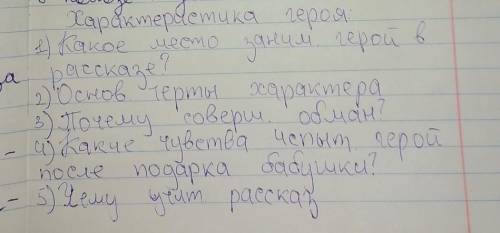 Характеристика героя:
1) Какое место заним. герой в
рассказе?
2) Основ черты характера
3) Почему соверш. обман?
4) Какие чувства испыт герой
после подарка бабушки?
5) Чему учит рассказ